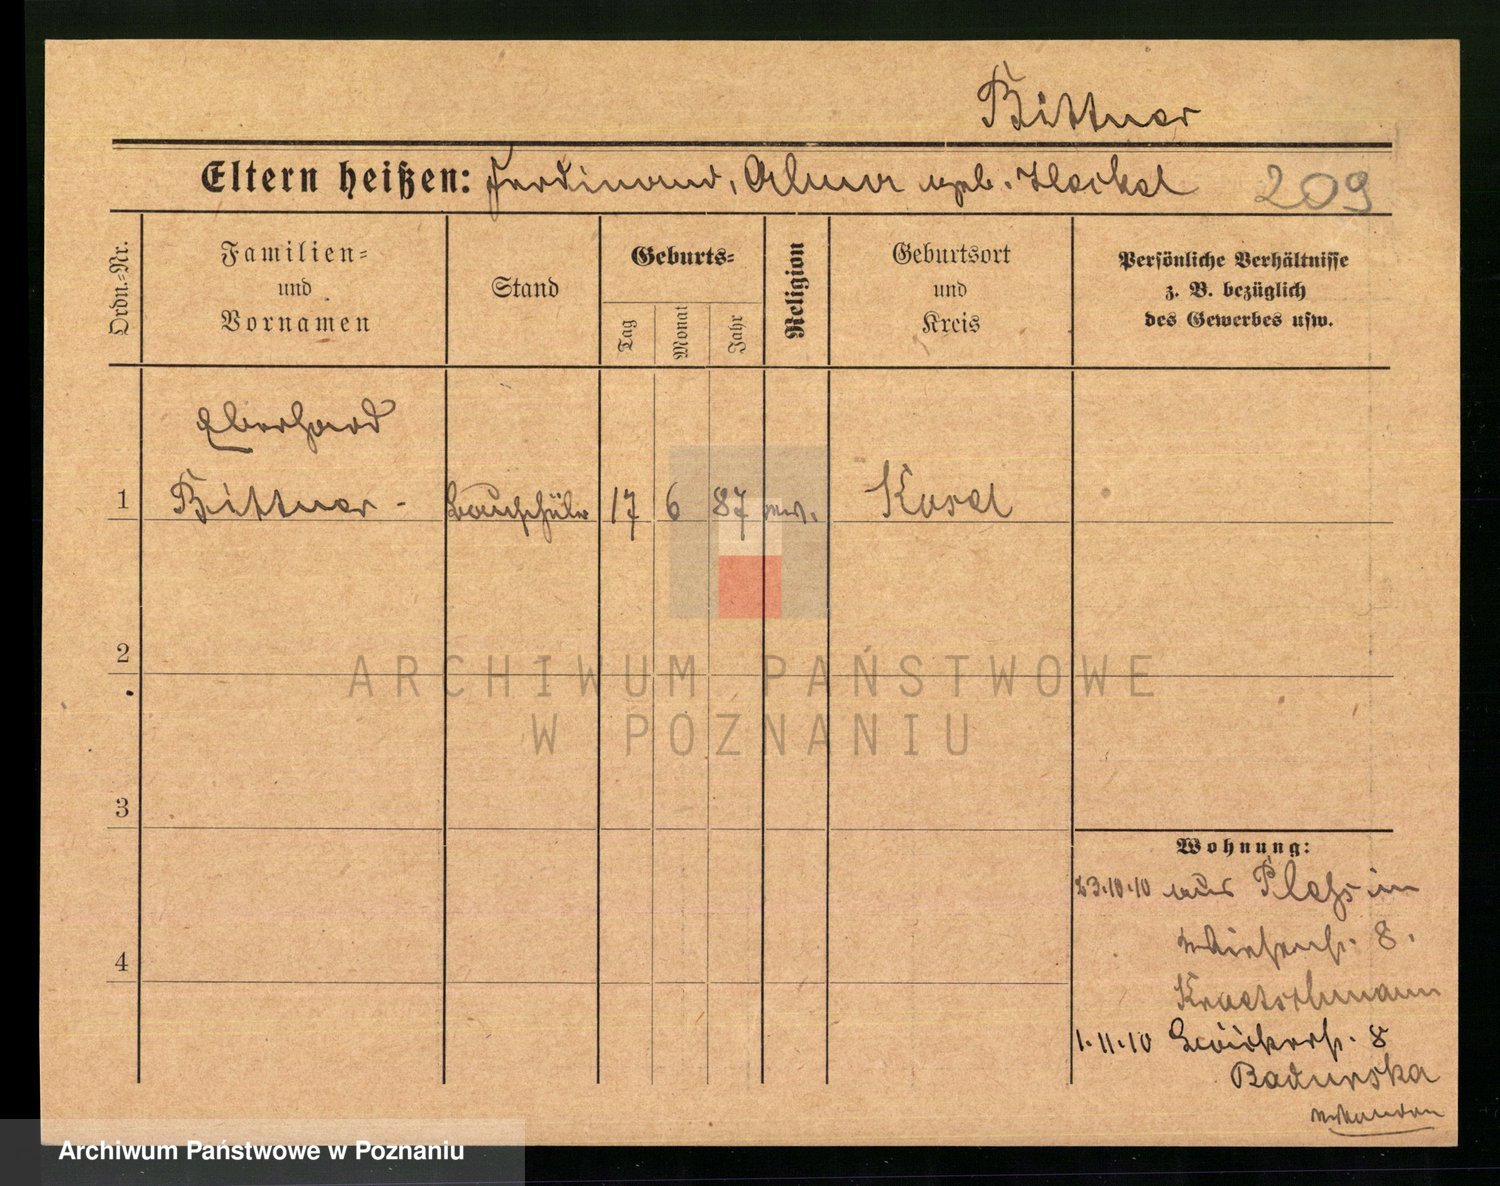 Bittner
Eltern heißen: Ferdinand, Alma geb. Heckel 209
Ordn.=Nr.
Familien=
und
Vornamen
Stand
Geburts=
Tag
Monat
Jahr
Religion
Geburtsort
und
Kreis
Persönliche Verhältnisse
z. B. bezüglich
des Gewerbes usw.
Eberhard
1 Bittner - Bauschüler 17 6 87 Kosel
2
3
4
Wohnung:
23.10.10 aus
8.
Kraetschmann
1.11.10 8
Badurska
ARCHIWUM PAŃSTWOWE
W POZNANIU
Archiwum Państwowe w Poznaniu